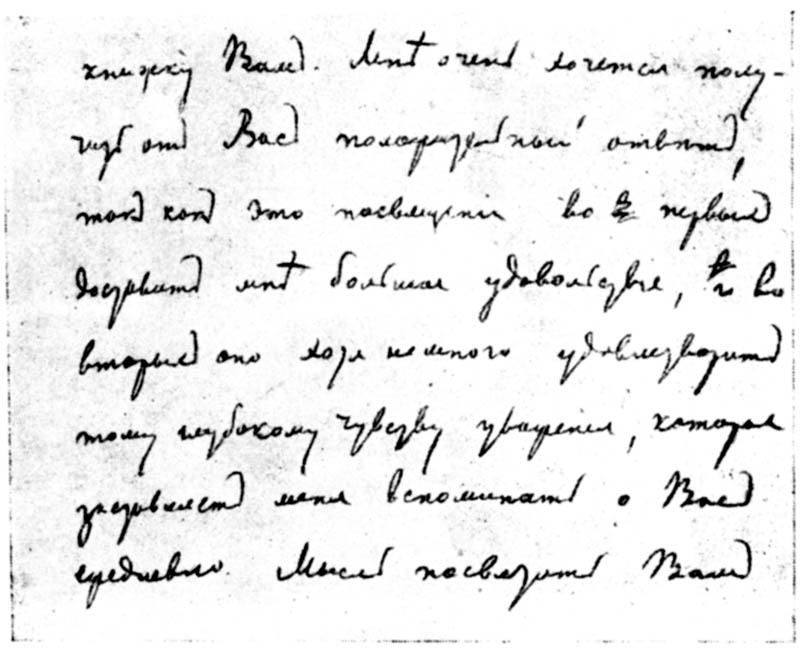 книжку Вамъ. Мнѣ очень хочется полу-
чить отъ Васъ положительный отвѣтъ,
такъ какъ это посвященіе во первыхъ
доставитъ мнѣ большое удовольствіе, и во
вторыхъ оно хотя немного удовлетворитъ
тому глубокому чувству уваженія, которое
заставляетъ меня вспоминать о Васъ
ежедневно. Мысль посвятить Вамъ